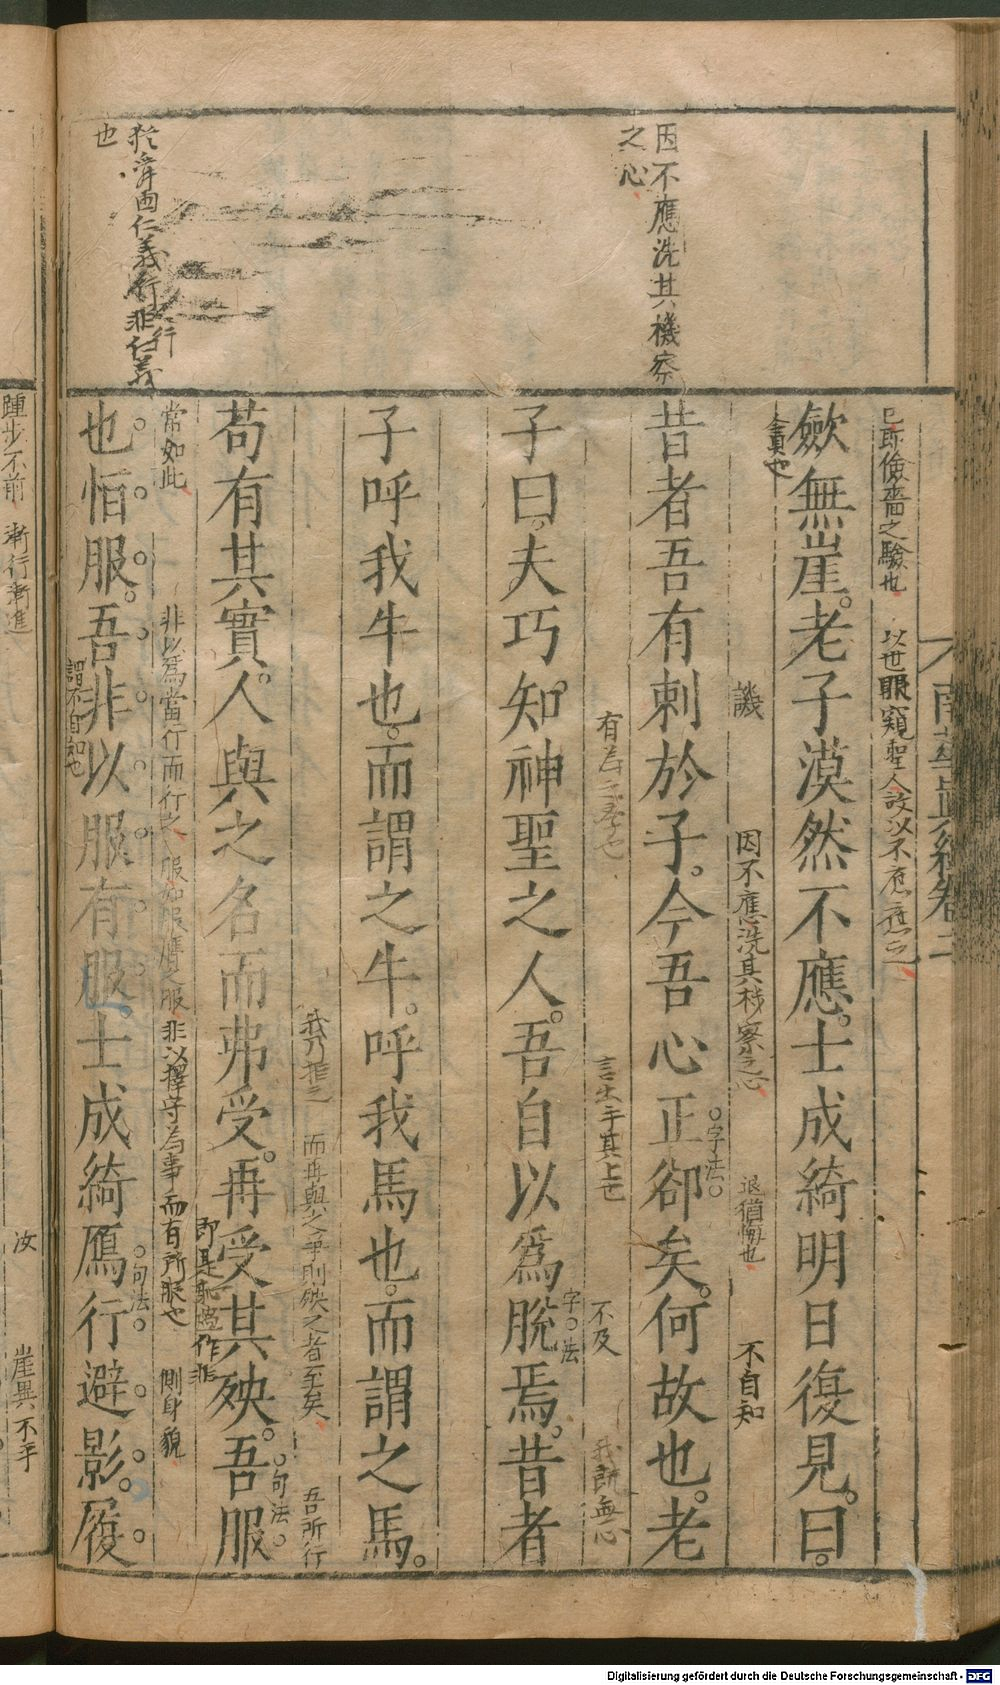 因不應洗其機察
之心
猶舜由仁義行非行仁義
也
南華眞經卷二
已即儉嗇之驗也 以世眼窺聖人故以不應應之
斂無崖老子漠然不應士成綺明日復見曰
譏 因不應洗其機察之心 退猶悔也 不自知
昔者吾有刺於子今吾心正卻矣何故也老
字法
有為之學也 言出乎其上也 不及 我既無心
子曰夫巧知神聖之人吾自以為脫焉昔者
字法
子呼我牛也而謂之牛呼我馬也而謂之馬
我乃拒之 而再與之爭則殃之者至矣 吾所行
苟有其實人與之名而弗受再受其殃吾服
句法
即是恥過作非
常如此 非以為當行而行之 服如服膺之服非以擇守為事而有所服也 側身貌
也恒服吾非以服有服士成綺鴈行避影履
句法
謂不自知也
踵步不前 漸行漸進 汝 崖異不乎
Digitalisierung gefördert durch die Deutsche Forschungsgemeinschaft - DFG